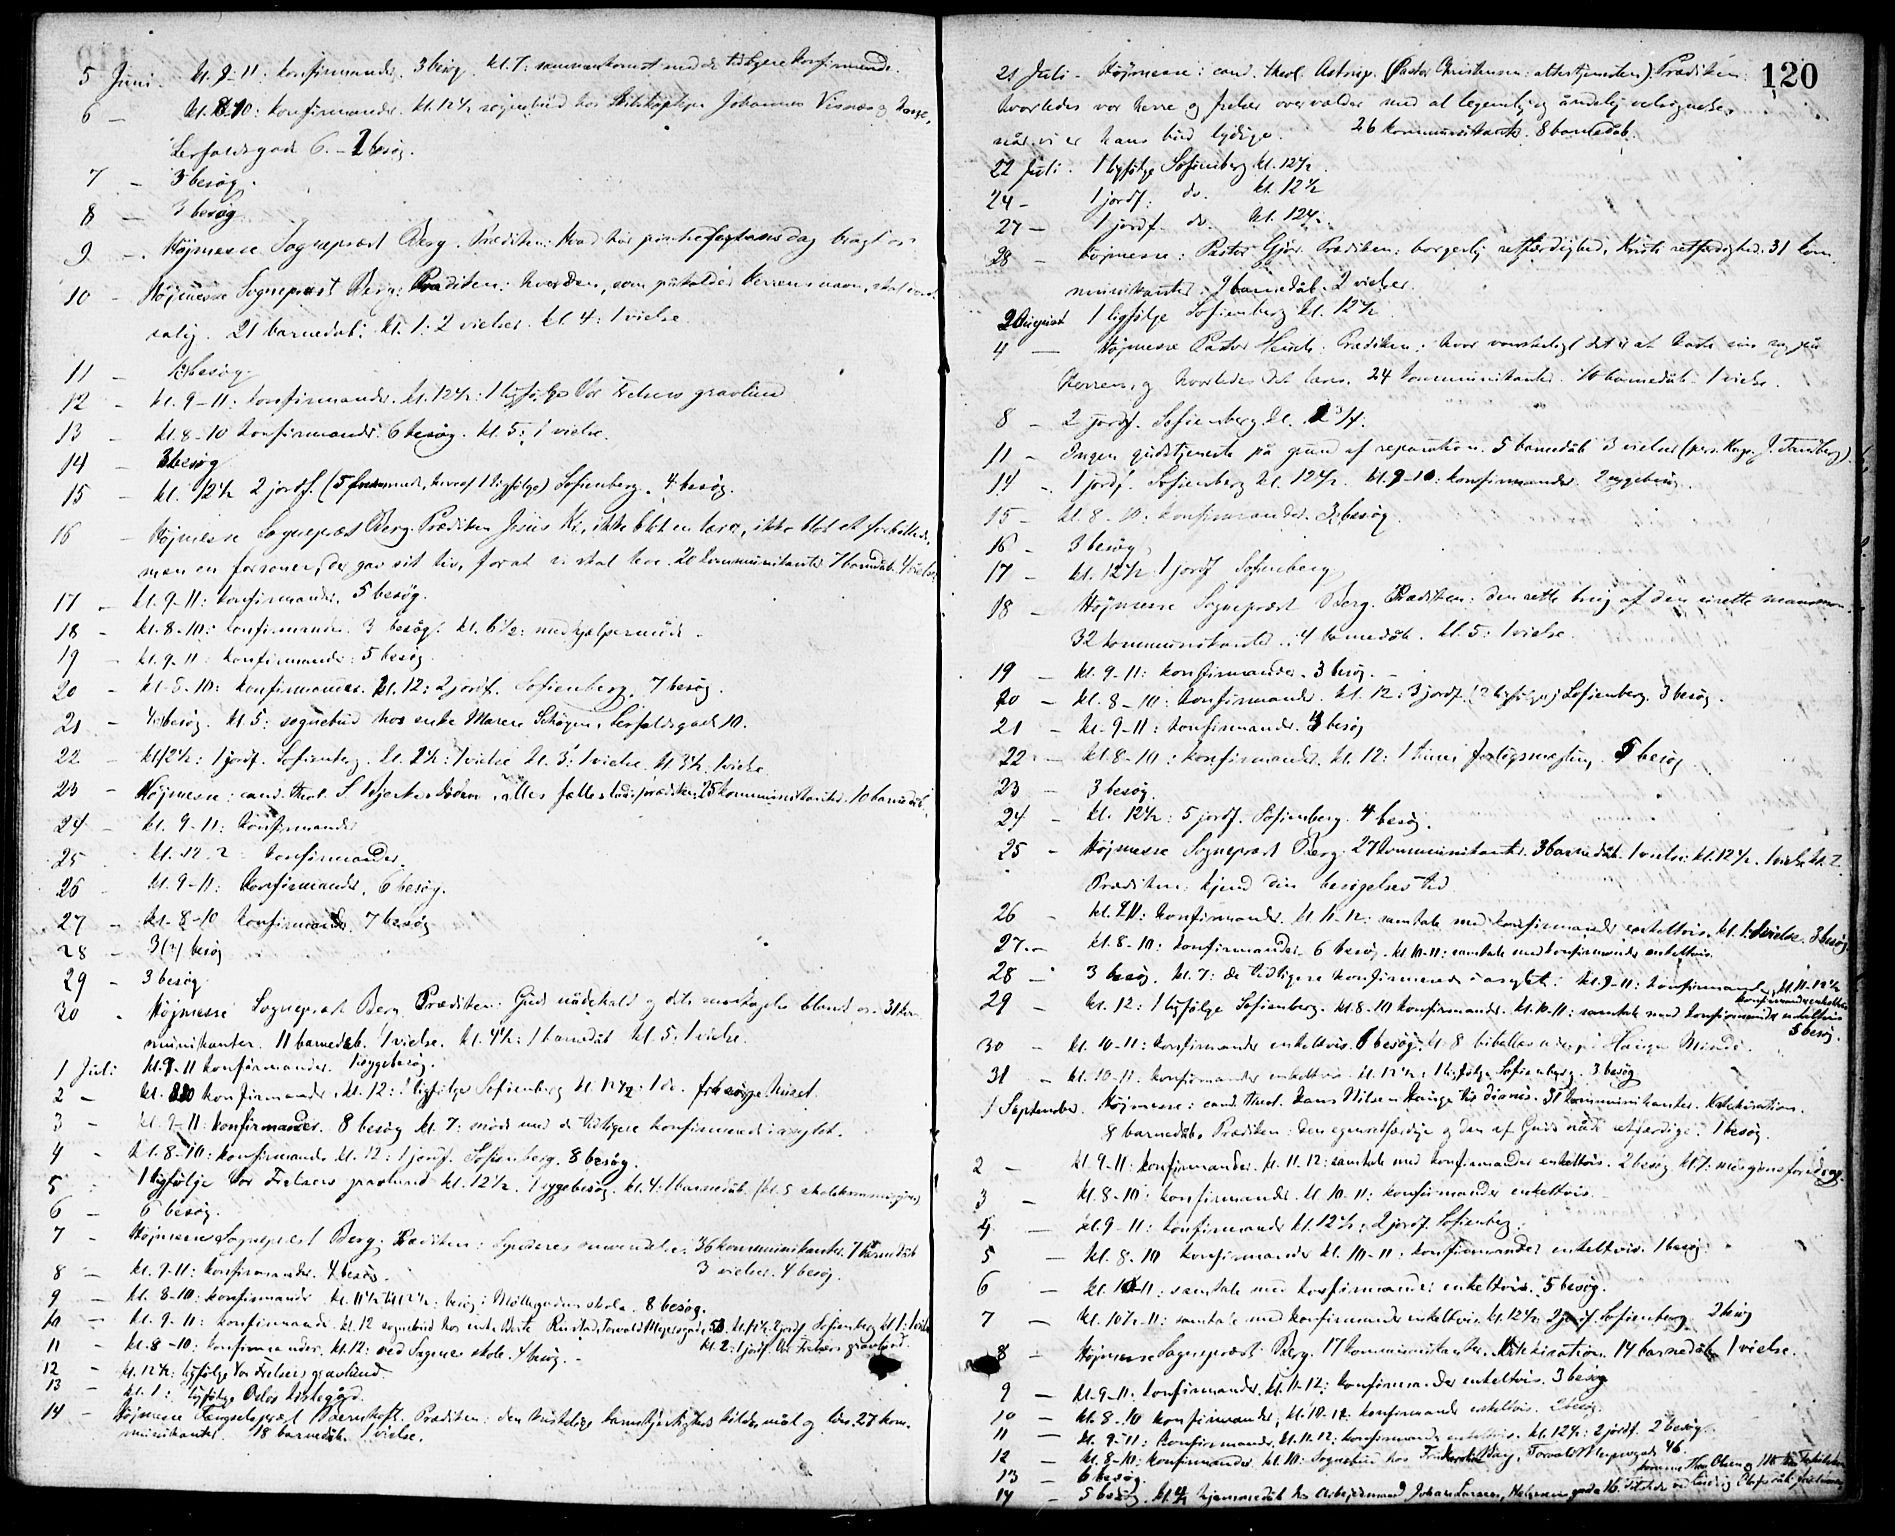 5 Juni. Kl. 9-11: konfirmander. 3 besøg. kl. 7: sammenkomst med de tidligere konfirmerede.
6 — kl. 8-10: konfirmander. kl. 12½ sognebud hos Johannes
Lerfaldsgade 6. — 2 besøg.
7 — 3 besøg.
8 — 3 besøg.
9 — Højmesse Sogneprest Berg. Prædiken: Hvad har pinsefestens dag bragt os
10 — Højmesse Sogneprest Berg: Prædiken: hver den, som påkalder Herrens navn, skal
salig. 21 barnedåb: kl. 1: 2 vielser. kl. 4: 1 vielse.
11 — besøg
12 — kl. 9-11: konfirmander. kl. 12½: 1 ligfølge Vor Frelsers gravlund
13 — kl. 8-10 konfirmander. 6 besøg. kl. 5: 1 vielse.
14 — 3 besøg
15 — kl. 12½ 2 jordf. (hvoraf 1 ligfølge) Sofienberg. 4 besøg.
16 — Højmesse Sogneprest Berg. Prædiken Jesus Kr. ikke blot en lærer, ikke blot et forbillede,
men en forsoner, der gav sit liv, for at vi skal leve. 20 kommunikanter 7 barnedåb. 4 vielser.
17 — kl. 9-11: konfirmander. 5 besøg.
18 — kl. 8-10: konfirmander. 3 besøg. kl. 6½: medhjælpermøde.
19 — kl. 9-11: konfirmander: 5 besøg
20 — kl. 8-10: konfirmander. kl. 12: 2 jordf. Sofienberg. 7 besøg.
21 — 4 besøg. kl. 5: sognebud hos enke Marere Schøyen, Lerfaldsgade 10.
22 — kl. 12½: 1 jordf. Sofienberg. kl. 2½: 1 vielse kl. 3: 1 vielse. kl. 3½ 1 vielse
23 — Højmesse: cand. theol. S. alles fælles prædiken. 25 kommunikanter. 10 barnedåb.
24 — kl. 9-11: konfirmander
25 — kl. 12-2: konfirmander.
26 — kl. 9-11: konfirmander, 6 besøg.
27 — kl. 8-10 konfirmander. 7 besøg
28 — 3 besøg
29 — 3 besøg.
30 — Højmesse Sogneprest Berg. Prædiken: Guds nådekald og dets modtagelse blandt os. 31 kom-
munikanter. 11 barnedåb. 1 vielse. kl. 4½: 1 barnedåb kl. 5: 1 vielse.
1 Juli kl. 9-11 konfirmander. 1 sygebesøg.
2 — kl. 8-10 konfirmander. kl. 12: 1 ligfølge Sofienberg kl. 12½: 1 do.
3 — kl. 9-11: konfirmander. 8 besøg kl. 7: møde med de tidligere konfirmerede i asylet.
4 — kl. 8-10: konfirmander kl. 12: 1 jordf. Sofienberg. 8 besøg.
5 — 1 ligfølge Vor Frelsers gravlund kl. 12½. 1 sygebesøg. kl. 4: 1 barnedåb. (kl. 5 skolekommissjon)
6 — 6 besøg.
7 — Højmesse Sogneprest Berg. Prædiken: Synderes omvendelse. 36 kommunikanter. 7 barnedåb
3 vielser. 4 besøg.
8 — kl. 9-11: konfirmander. 4 besøg.
9 — kl. 8-10: konfirmander. kl. 11½ til 12½: besøg i Møllergadens skole. 8 besøg.
10 — kl. 9-11: konfirmander. kl. 12 sognebud hos enke Berte Rustad, Torvald Meyersgade 50. kl. 12½ 2 jordf. Sofienberg kl. 1: 1 vielse
kl. 2: 1 jordf. Vor Frelsers gravlund.
11 — kl. 8-10: konfirmander. kl. 12: ved Sagenes skole. 4 besøg.
12 — kl. 12½: ligfølge Vor Frelsers gravlund.
13 — kl. 1: ligfølge Oslo kirkegård.
14 — Højmesse Fængselsprest Prædiken: den kristelige kærlighets kilde, mål og løn. 27 kom-
munikanter. 18 barnedåb. 1 vielse.
120
21 Juli — Højmesse: cand. theol. Astrup. (Pastor Christensen: altertjenesten). Prædiken:
hvorledes vor herre og frelser overvælder med al legemlig og åndelig velsignelse,
når vi er hans bud lydige. 26 kommunikanter. 8 barnedåb.
22 Juli. 1 ligfølge Sofienberg kl. 12½.
24 — 1 jordf. do. kl. 12½
27 — 1 jordf. do. kl. 12½.
28 — Højmesse: Pastor Gjør. Prædiken: borgerlig retfærdighed, Kristi retfærdighed. 31 kom-
munikanter. 9 barnedåb. 2 vielser.
2 August 1 ligfølge Sofienberg kl. 12½.
4 — Højmesse Pastor Prædiken: hvor vanskeligt det er at kaste sin sorg på
Herren, og hvorledes det læres. 24 kommunikanter. 10 barnedåb. 1 vielse.
8 — 2 jordf. Sofienberg kl.
11 — Ingen gudstjeneste på grund af reparation. 5 barnedåb 3 vielser (pers. Kap. J. Tandberg).
14 — 1 jordf. Sofienberg kl. 12½. kl. 9-10: konfirmander. 2 sygebesøg.
15 — kl. 8-10: konfirmander. 3 besøg.
16 — 3 besøg
17 — kl. 12½ 1 jordf Sofienberg
18 — Højmesse Sogneprest Berg. Prædiken: den rette brug af den urette mammon.
32 kommunikanter. 4 barnedåb. kl. 5: 1 vielse.
19 — kl. 9-11: konfirmander. 3 besøg.
20 — kl. 8-10: konfirmander. kl. 12: 3 jordf. (2 ligfølger) Sofienberg. 3 besøg.
21 — kl. 9-11: konfirmander. 4 besøg
22 — kl. 8-10: konfirmander. kl. 12: 1 forligsmegling. 5 besøg.
23 — 3 besøg.
24 — kl. 12½: 5 jordf. Sofienberg. 4 besøg.
25 — Højmesse Sogneprest Berg. 27 kommunikanter. 3 barnedåb. 1 vielse kl. 12½. 1 vielse kl. 2.
Prædiken: kjend din besøgelsestid
26 — kl. 9-11: konfirmander. kl. 11-12: samtale med konfirmander enkeltvis. kl. 1: 1 vielse. 3 besøg
27 — kl. 8-10: konfirmander. 6 besøg. kl. 10-11: samtale med konfirmander enkeltvis.
28 — 3 besøg. kl. 7: de tidligere konfirmerede i asylet. kl. 9-11: konfirmander, kl. 11-12½
konfirmander enkeltvis
29 — kl. 12: 1 ligfølge Sofienberg. kl. 8-10 konfirmander. kl. 10-11: samtale med konfirmander enkeltvis
5 besøg.
30 — kl. 10-11: konfirmander enkeltvis. 6 besøg. kl. 8 bibellæsning i Hauges Minde.
31 — kl. 10-11. konfirmander enkeltvis. kl. 12½: 1 ligfølge Sofienberg. 3 besøg
1 September. Højmesse: cand. theol. Hans Nilsen Hauge 31 kommunikanter. Katekisation.
8 barnedåb. Prædiken: den egenretfærdige og den af Guds nåde retfærdige. 1 besøg.
2 — kl. 9-11: konfirmander. kl. 11-12: samtale med konfirmander enkeltvis. 2 besøg. kl. 7: missjonsforedrag.
3 — kl. 8-10: konfirmander. kl. 10-11: konfirmander enkeltvis.
4 — kl. 9-11: konfirmander kl. 12½: 2 jordf. Sofienberg.
5 — kl. 8-10 konfirmander kl. 10-11: konfirmander enkeltvis. 1 besøg.
6 — kl. 10-11: samtale med konfirmander enkeltvis. 5 besøg.
7 — kl. 10½-11: samtale med konfirmander enkeltvis. kl. 12½ 2 jordf. Sofienberg. 2 besøg
8 — Højmesse Sogneprest Berg. 17 kommunikanter. Katekisation. 14 barnedåb. 1 vielse.
9 — kl. 9-11: konfirmander. kl. 11-12: konfirmander enkeltvis. 3 besøg
10 — kl. 8-10 konfirmander, kl. 10-11: konfirmander enkeltvis. 2 besøg.
11 — kl. 9-11: konfirmander. kl. 11-12: konfirmander enkeltvis. kl. 12½: 2 jordf. 2 besøg.
12 — kl. 8-10: konfirmander. kl. 10: Sognebud hos Torvald Meyersgade 46.
13 — 6 besøg.
14 — 5 besøg. kl. 4: hjemmedåb hos Arbejdsmand Johan Larsen,